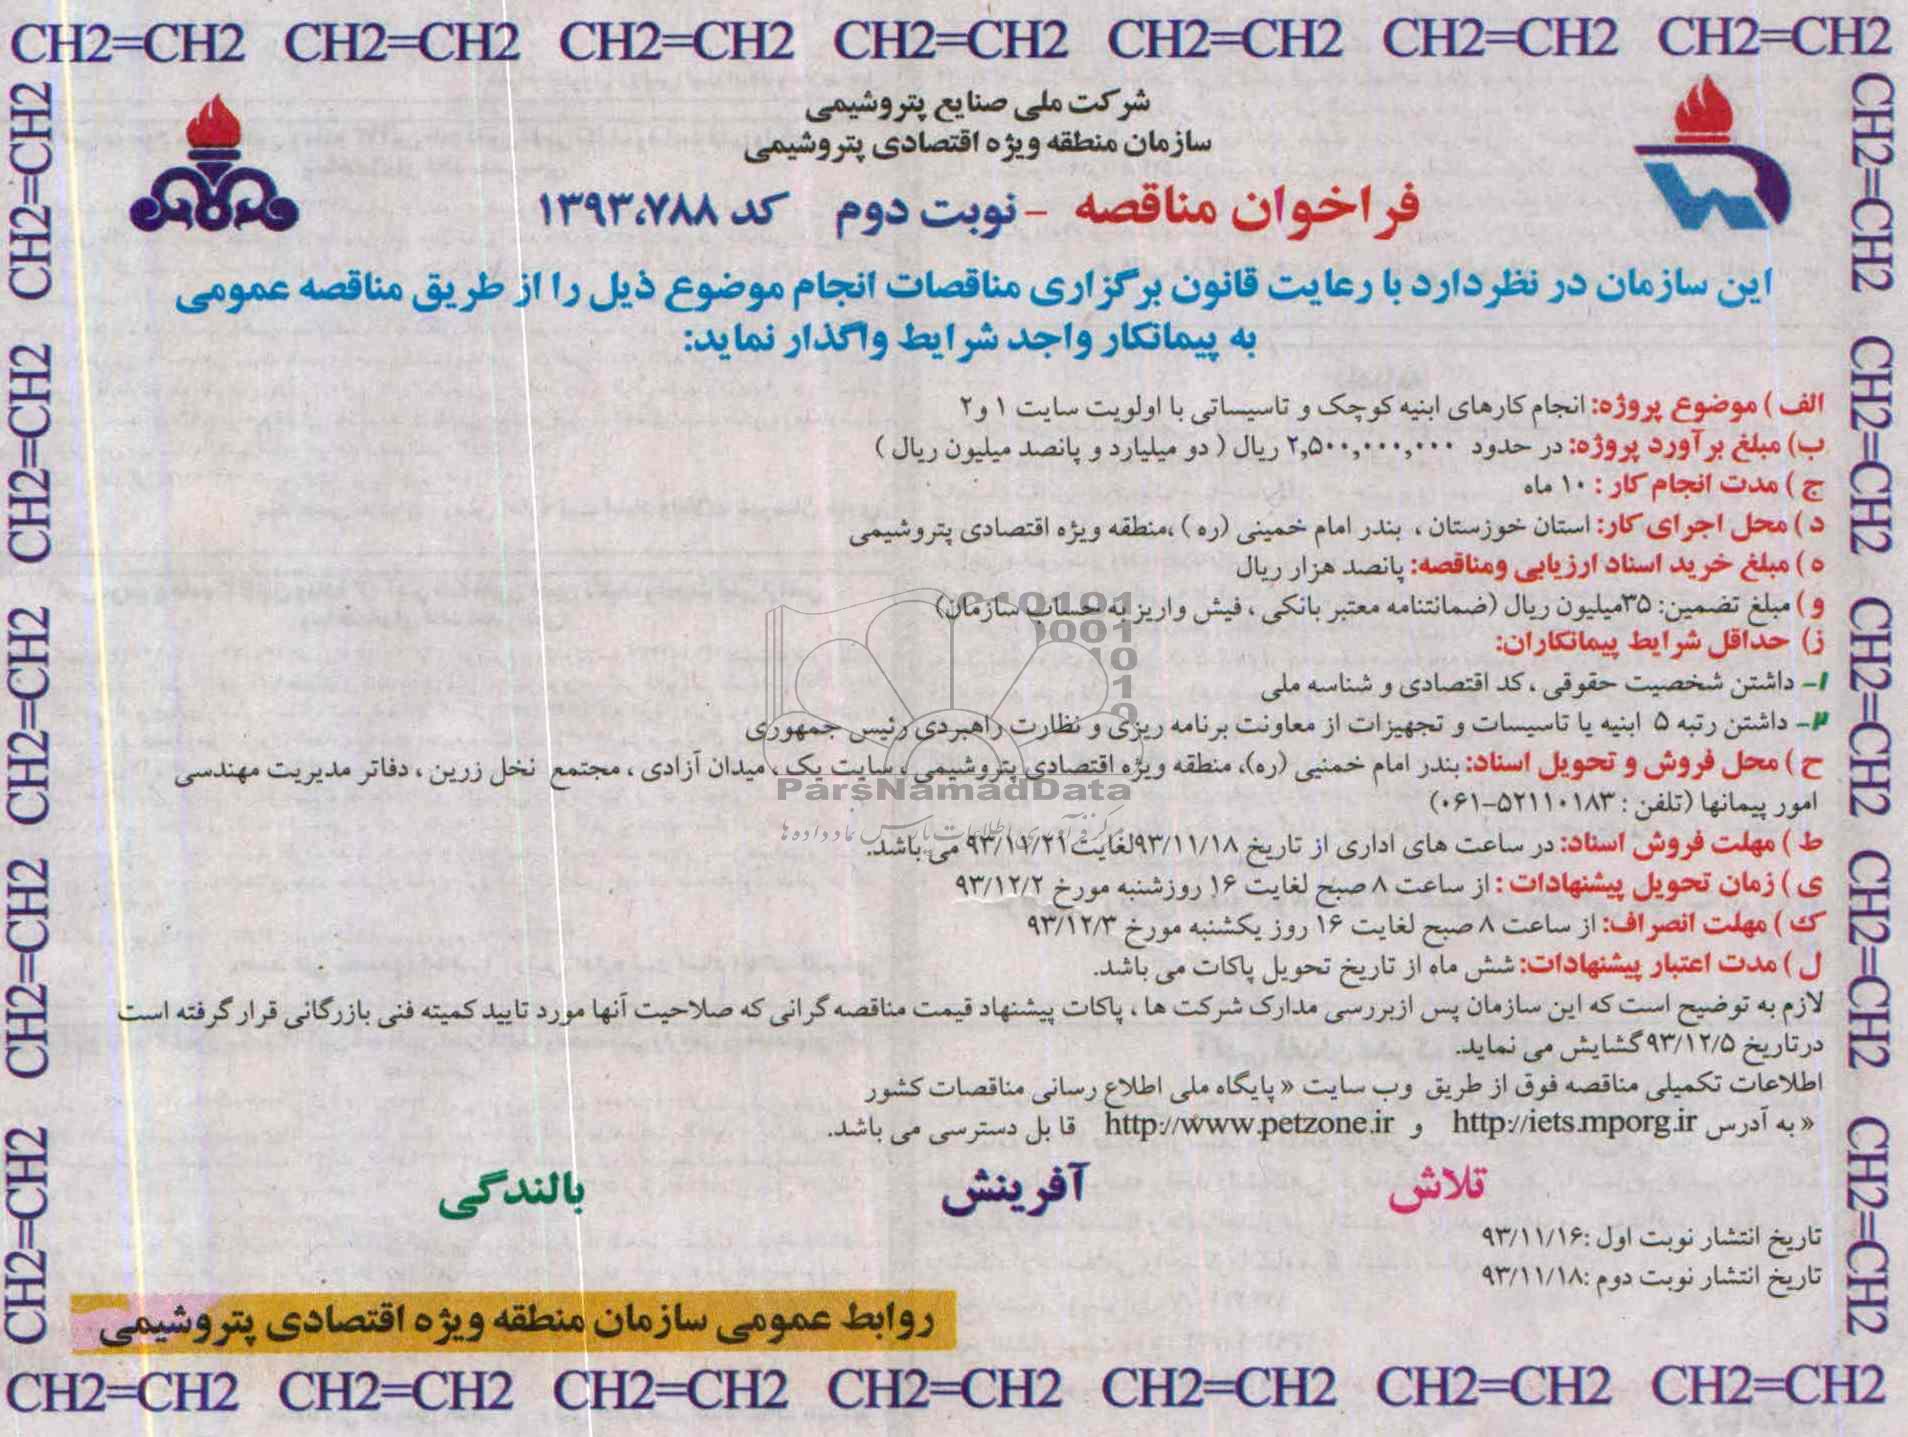 CH2=CH2 CH2=CH2 CH2=CH2 CH2=CH2 CH2=CH2 CH2=CH2 CH2=CH2
شرکت ملی صنایع پتروشیمی
سازمان منطقه ویژه اقتصادی پتروشیمی
فراخوان مناقصه - نوبت دوم کد ۱۳۹۳،۷۸۸
این سازمان در نظر دارد با رعایت قانون برگزاری مناقصات انجام موضوع ذیل را از طریق مناقصه عمومی
به پیمانکار واجد شرایط واگذار نماید:
الف ) موضوع پروژه: انجام کارهای ابنیه کوچک و تاسیساتی با اولویت سایت ۱ و۲
ب) مبلغ برآورد پروژه: در حدود ۲,۵۰۰,۰۰۰,۰۰۰ ریال ( دو میلیارد و پانصد میلیون ریال )
ج ) مدت انجام کار : ۱۰ ماه
د ) محل اجرای کار: استان خوزستان ، بندر امام خمینی (ره ) ،منطقه ویژه اقتصادی پتروشیمی
ه ) مبلغ خرید اسناد ارزیابی ومناقصه: پانصد هزار ریال
و ) مبلغ تضمین: ۳۵میلیون ریال (ضمانتنامه معتبر بانکی ، فیش واریز به حساب سازمان)
ز) حداقل شرایط پیمانکاران:
۱- داشتن شخصیت حقوقی ، کد اقتصادی و شناسه ملی
۲- داشتن رتبه ۵ ابنیه یا تاسیسات و تجهیزات از معاونت برنامه ریزی و نظارت راهبردی رئیس جمهوری
ح ) محل فروش و تحویل اسناد: بندر امام خمنیی (ره)، منطقه ویژه اقتصادی پتروشیمی ، سایت یک ، میدان آزادی ، مجتمع نخل زرین ، دفاتر مدیریت مهندسی
امور پیمانها (تلفن : ۵۲۱۱۰۱۸۳-۰۶۱)
ط ) مهلت فروش اسناد: در ساعت های اداری از تاریخ ۹۳/۱۱/۱۸لغایت۹۳/۱۱/۲۱ می باشد.
ی ) زمان تحویل پیشنهادات : از ساعت ۸ صبح لغایت ۱۶ روزشنبه مورخ ۹۳/۱۲/۲
ک ) مهلت انصراف: از ساعت ۸ صبح لغایت ۱۶ روز یکشنبه مورخ ۹۳/۱۲/۳
ل ) مدت اعتبار پیشنهادات: شش ماه از تاریخ تحویل پاکات می باشد.
لازم به توضیح است که این سازمان پس ازبررسی مدارک شرکت ها ، پاکات پیشنهاد قیمت مناقصه گرانی که صلاحیت آنها مورد تایید کمیته فنی بازرگانی قرار گرفته است
درتاریخ ۹۳/۱۲/۵ گشایش می نماید.
اطلاعات تکمیلی مناقصه فوق از طریق وب سایت « پایگاه ملی اطلاع رسانی مناقصات کشور
« به آدرس http://iets.mporg.ir و http://www.petzone.ir قابل دسترسی می باشد.
تلاش آفرینش بالندگی
تاریخ انتشار نوبت اول :۹۳/۱۱/۱۶
تاریخ انتشار نوبت دوم :۹۳/۱۱/۱۸
روابط عمومی سازمان منطقه ویژه اقتصادی پتروشیمی
CH2=CH2 CH2=CH2 CH2=CH2 CH2=CH2 CH2=CH2 CH2=CH2 CH2=CH2
CH2=CH2 CH2=CH2 CH2=CH2 CH2=CH2 CH2=CH2
CH2=CH2 CH2=CH2 CH2=CH2 CH2=CH2 CH2=CH2
ParsNamadData